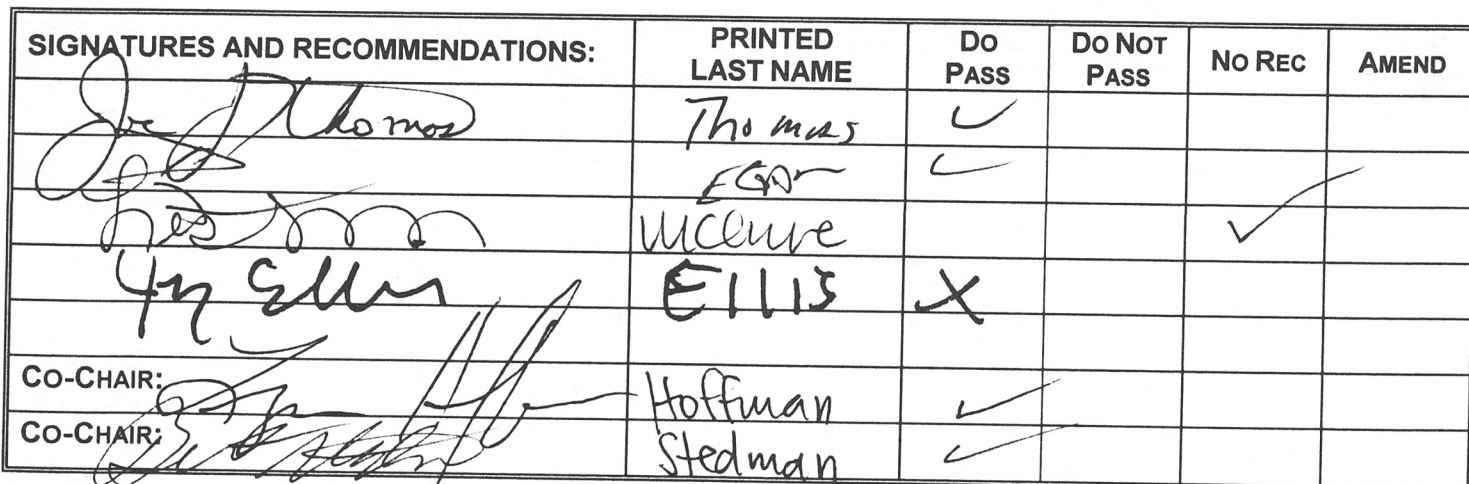 SIGNATURES AND RECOMMENDATIONS: PRINTED LAST NAME DO PASS DO NOT PASS NO REC AMEND
Joe J Thomas Thomas ✓
Egan ✓
McClure ✓
Ellis EllIS X
CO-CHAIR: Hoffman ✓
CO-CHAIR: Stedman ✓